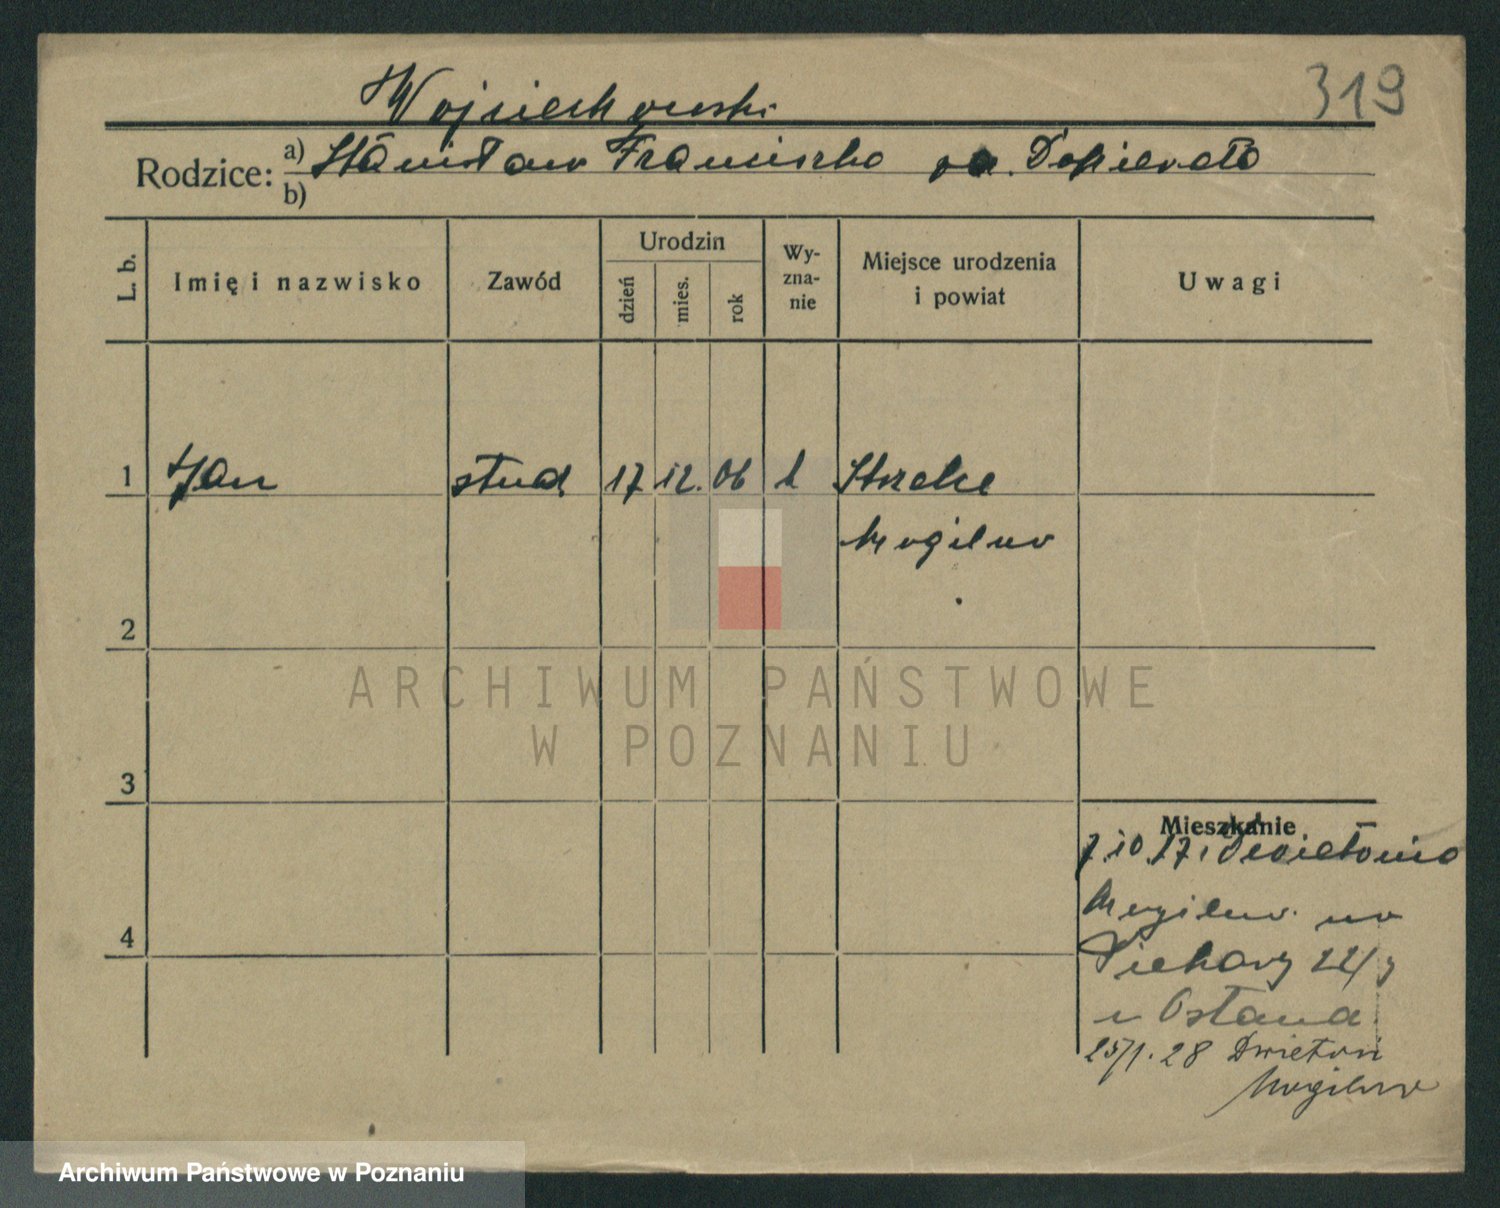 Wojciechowski
319
Rodzice: a) Stanisław Franciszka za. Dopierała
b)
L. b.
Imię i nazwisko
Zawód
Urodzin
dzień
mies.
rok
Wy-
zna-
nie
Miejsce urodzenia
i powiat
Uwagi
1 Jan stud 17 12. 06 k Strzelce
Mogilno
2
3
4
Mieszkanie
7.10.27.
Mogilno. na
Piekary 22/
u Osłana
25/1.28
Mogilno
ARCHIWUM PAŃSTWOWE
W POZNANIU
Archiwum Państwowe w Poznaniu